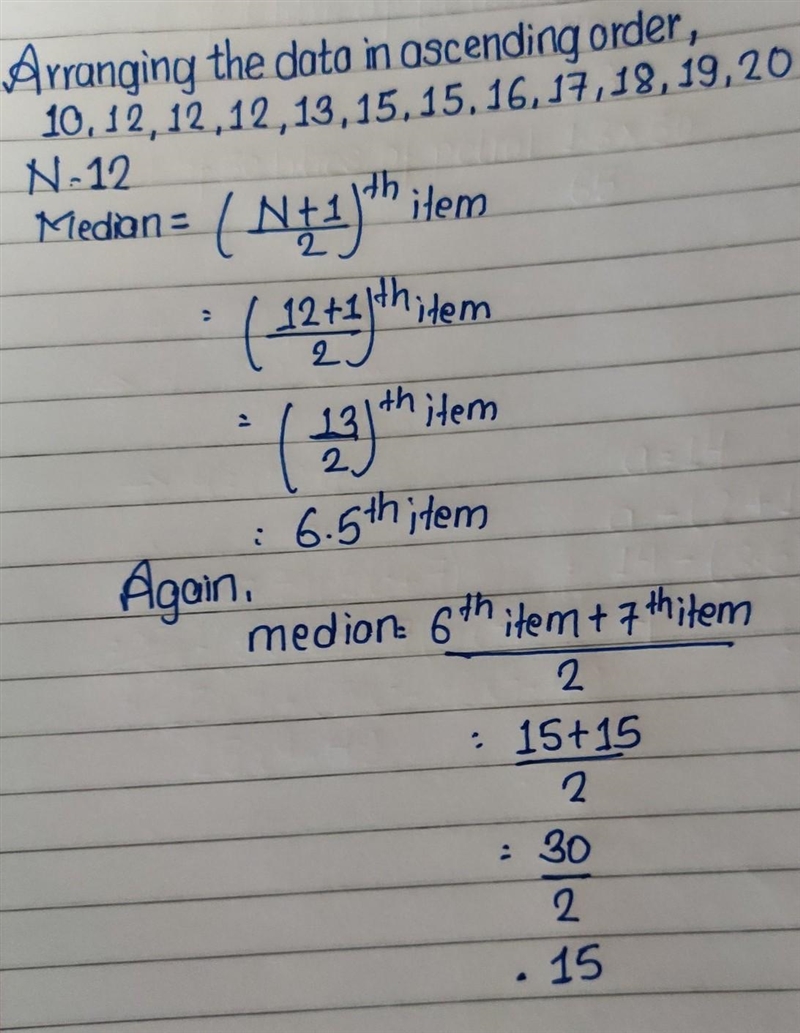 Arranging the data in ascending order,
10, 12, 12, 12, 13, 15, 15, 16, 17, 18, 19, 20
N = 12
Median = (N+1/2)th item
= (12+1/2)th item
= (13/2)th item
= 6.5th item
Again,
median = 6th item + 7th item / 2
= 15+15/2
= 30/2
. 15